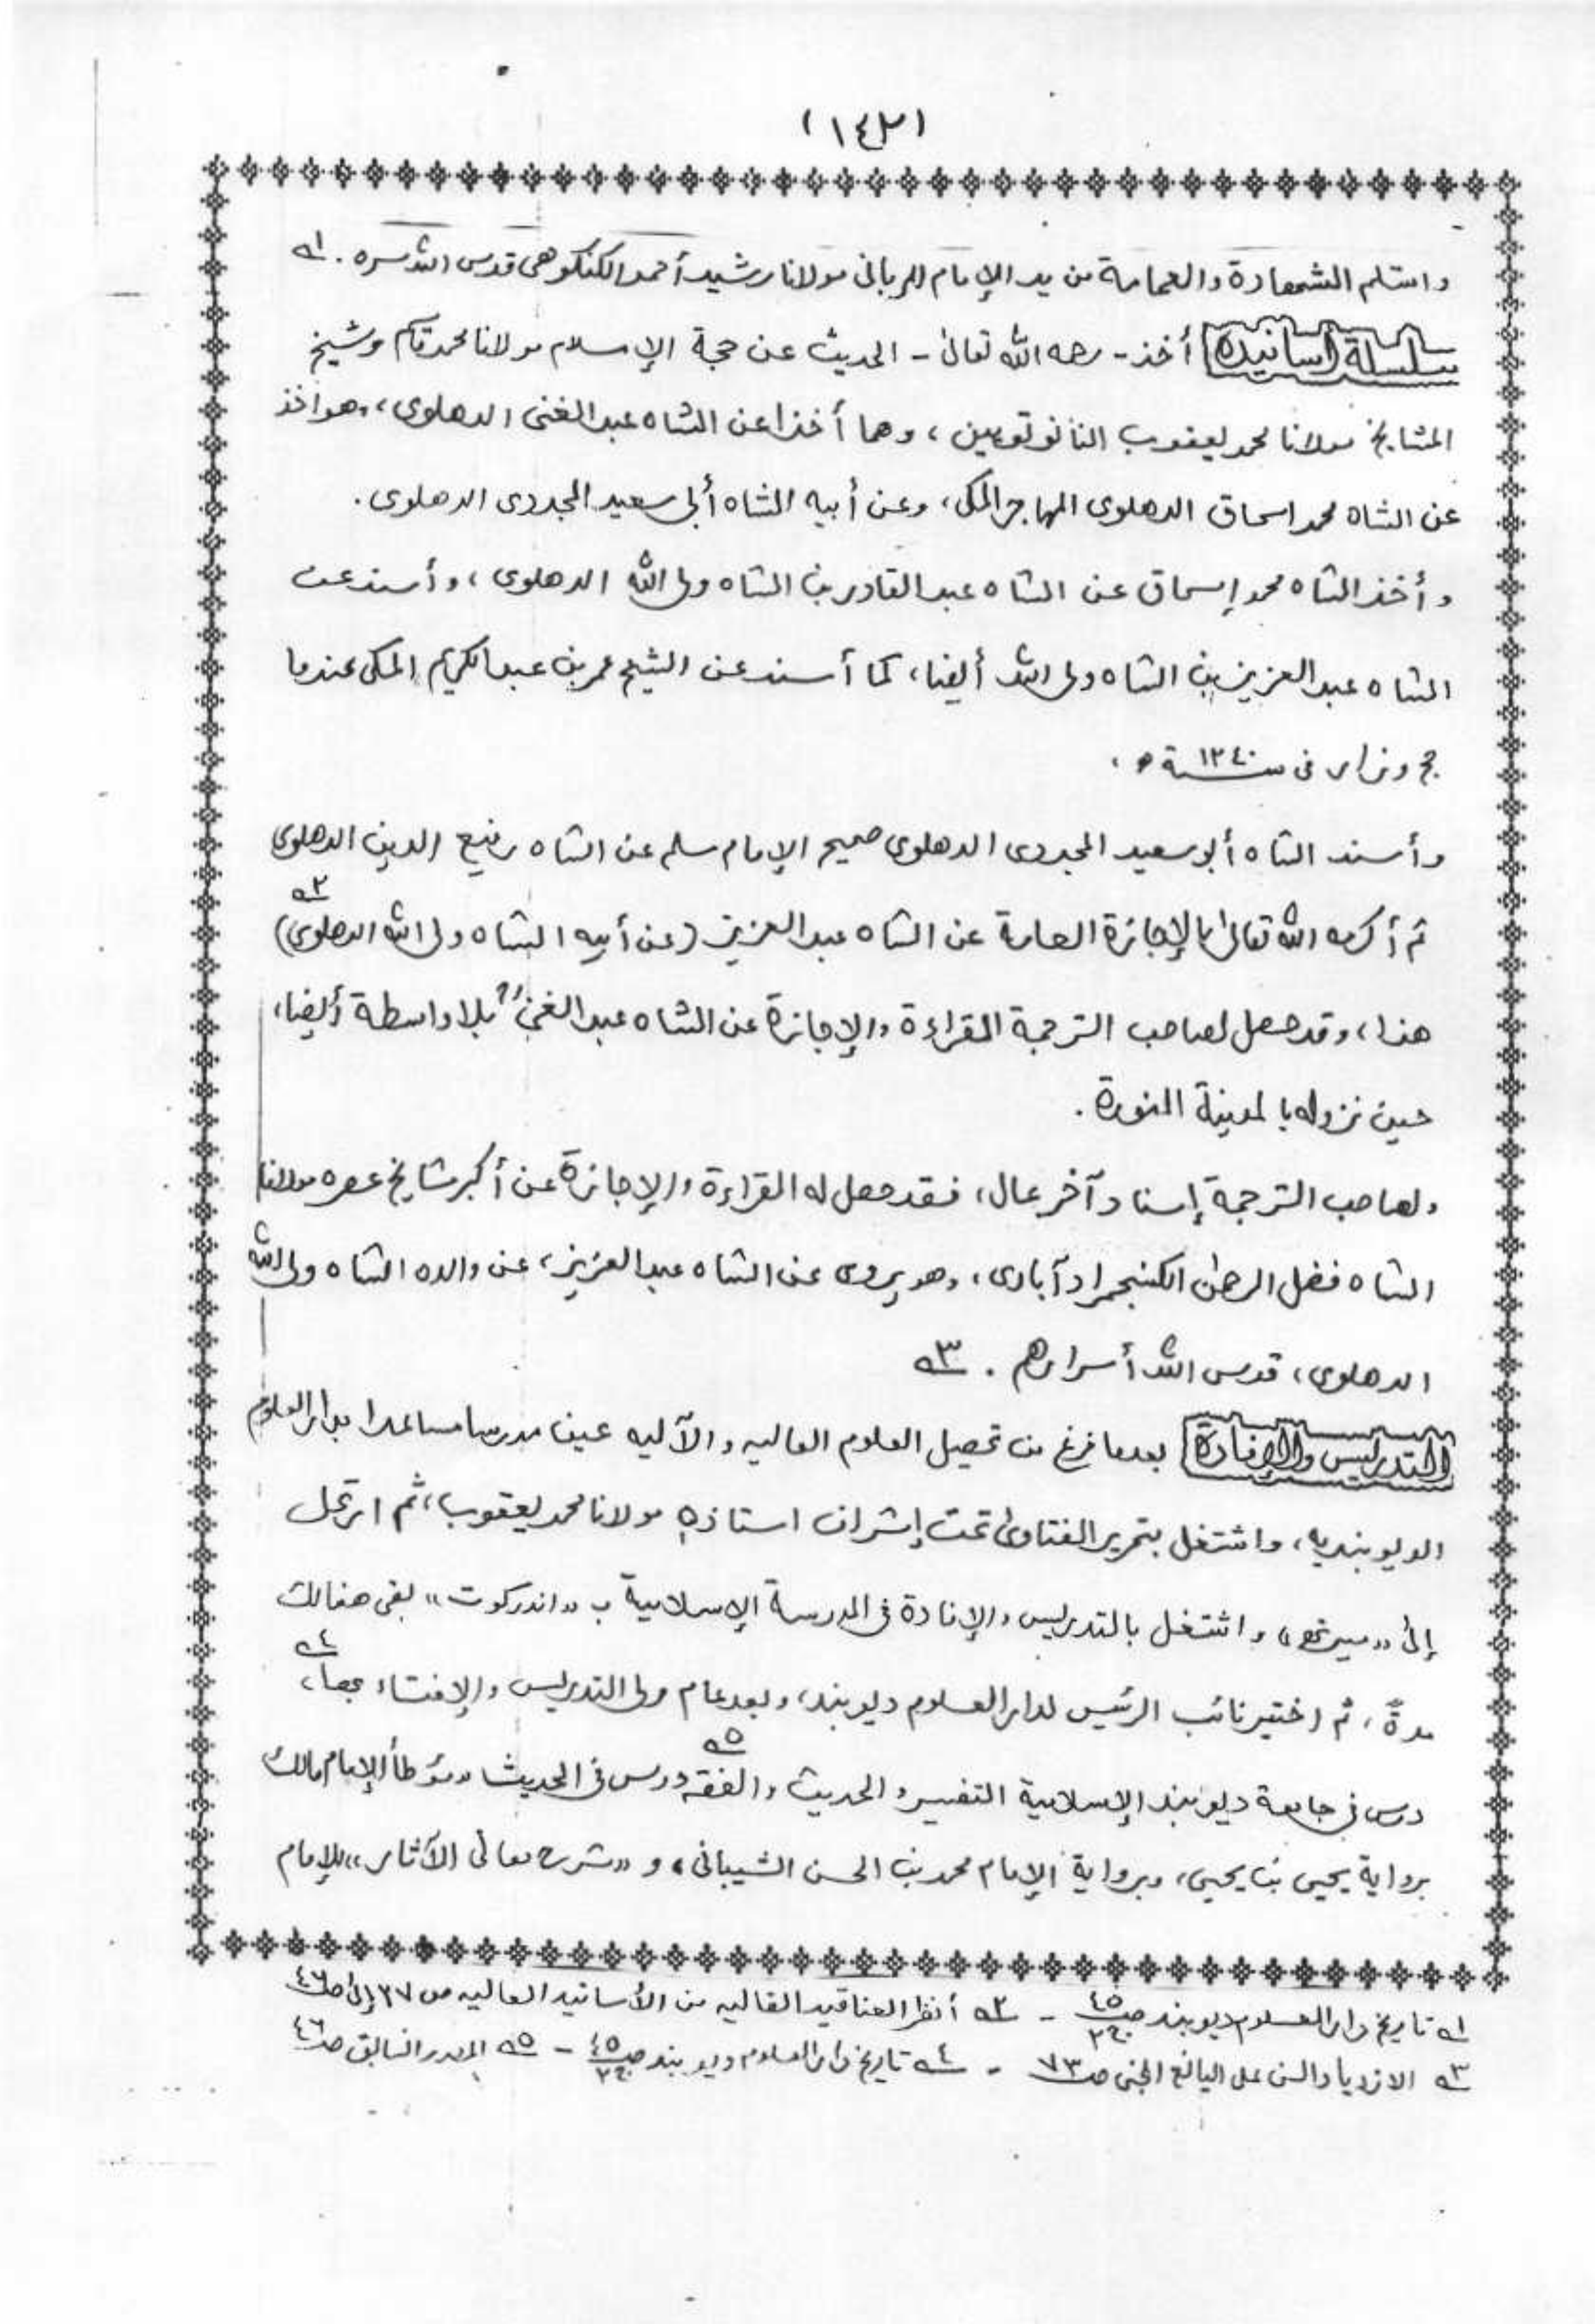 (١٤٢)
واستلم الشهادة والعمامة من يد الإمام الرباني مولانا رشيد أحمد الكنكوهي قدس الله سره . ١ه
سلسلة أسانيده أخذ - رحمه الله تعالى - الحديث عن حجة الإسلام مولانا محمد قاسم وشيخ
المشايخ مولانا محمد يعقوب النانوتويين ، وهما أخذا عن الشاه عبد الغنى الدهلوى ، وهو أخذ
عن الشاه محمد اسحاق الدهلوى المهاجر المكى ، وعن أبيه الشاه أبى سعيد المجددى الدهلوى .
وأخذ الشاه محمد إسحاق عن الشاه عبد القادر بن الشاه ولى الله الدهلوى ، وأسند عن
الشاه عبد العزيز بن الشاه ولى الله أيضا ، كما أسند عن الشيخ عمر بن عبد الكريم المكى عندما
حج وزار فى سنة ١٢٤٠ ه .
وأسند الشاه أبو سعيد المجددى الدهلوى صحيح الإمام مسلم عن الشاه رفيع الدين الدهلوى
ثم أكرمه الله تعالى بالإجازة العامة عن الشاه عبد العزيز (عن أبيه الشاه ولى الله الدهلوى) ٢ه
هذا ، وقد حصل لصاحب الترجمة القراءة والإجازة عن الشاه عبد الغنى بلا واسطة أيضا ،
حين نزوله بالمدينة المنورة .
ولصاحب الترجمة إسناد آخر عال ، فقد حصل له القراءة والإجازة عن أكبر مشايخ عصره مولانا
الشاه فضل الرحمن الكنجمرادآبادى ، وهو يروى عن الشاه عبد العزيز ، عن والده الشاه ولى الله
الدهلوى ، قدس الله أسرارهم . ٣ه
التدريس والإفادة بعدما فرغ من تحصيل العلوم العاليه والآليه عين مدرسا مساعدا بدار العلوم
الديوبنديه ، واشتغل بتحرير الفتاوى تحت إشراف استاذه مولانا محمد يعقوب ، ثم ارتحل
إلى «ميرته» واشتغل بالتدريس والإفادة فى المدرسة الإسلامية ب «اندركوت» بقى هنالك
مدة ، ثم اختير نائب الرئيس لدار العلوم ديوبند ، وبعد عام ولى التدريس والإفتاء بها ، ٤ه
درس فى جامعة ديوبند الإسلامية التفسير والحديث والفقه ٥ه ودرس فى الحديث «موطأ الإمام مالك»
برواية يحيى بن يحيى ، وبرواية الإمام محمد بن الحسن الشيبانى ، و «شرح معانى الآثار» للإمام
١ه تاريخ دار العلوم ديوبند صـ٤٥ ج٢ - ٢ه أنظر العناقيد الغاليه من الأسانيد العاليه ص ٣٧ إلى صـ٤٦
٣ه الازدياد السنى على اليانع الجنى صـ٧٣ - ٤ه تاريخ دار العلوم ديوبند صـ٤٥ ج٢ - ٥ه المصدر السابق صـ٤٦